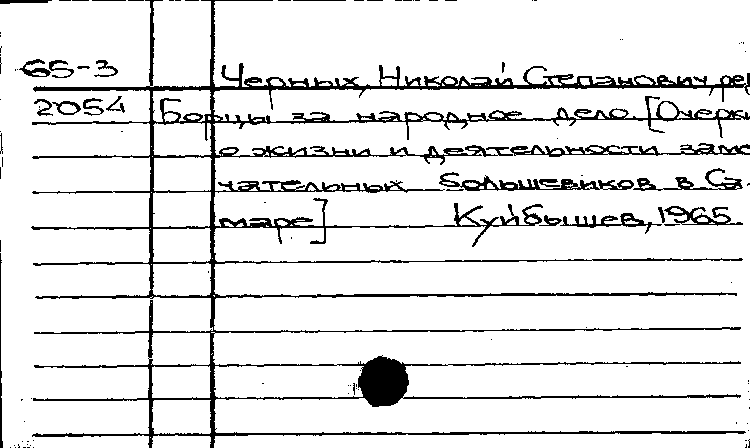 65-3 Черных, Николай Степанович, ред
2054 Борцы за народное дело. [Очерки
о жизни и деятельности заме
чательных большевиков в Са-
маре] Куйбышев, 1965.